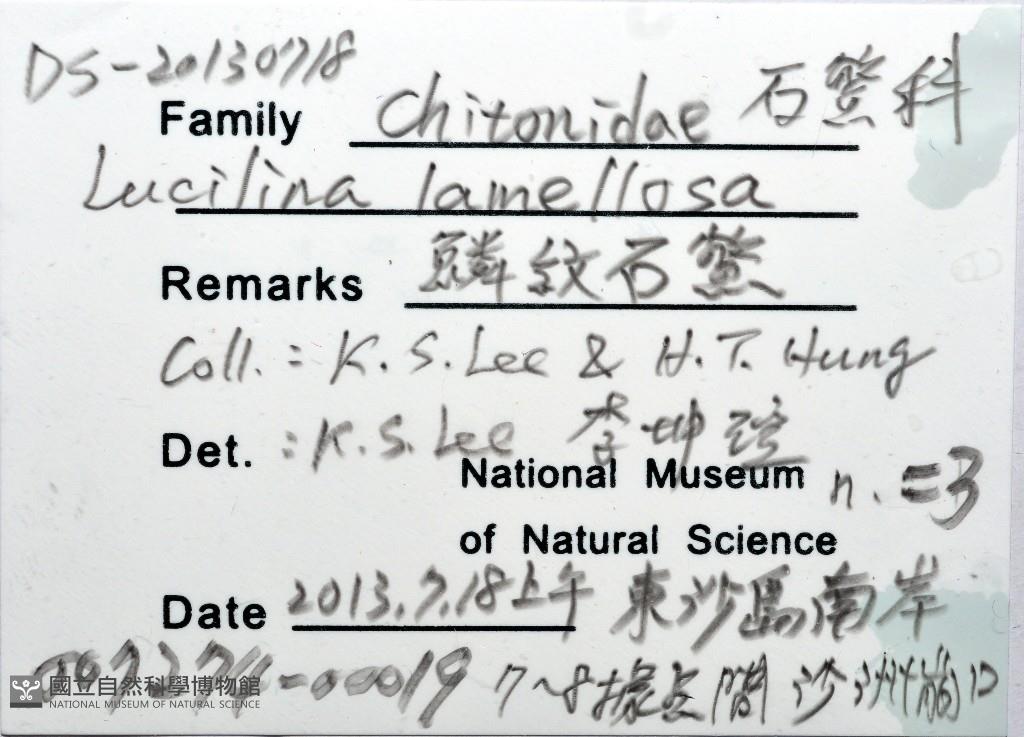 DS-20130718
Family Chitonidae 石鱉科
Lucilina lamellosa
Remarks 鱗紋石鱉
Coll. : K. S. Lee & H. T. Hung
Det. : K. S. Lee 李坤瑄
National Museum n. = 3
of Natural Science
Date 2013.7.18 上午 東沙島南岸
-00019 7~8據點間 沙洲
國立自然科學博物館
NATIONAL MUSEUM OF NATURAL SCIENCE